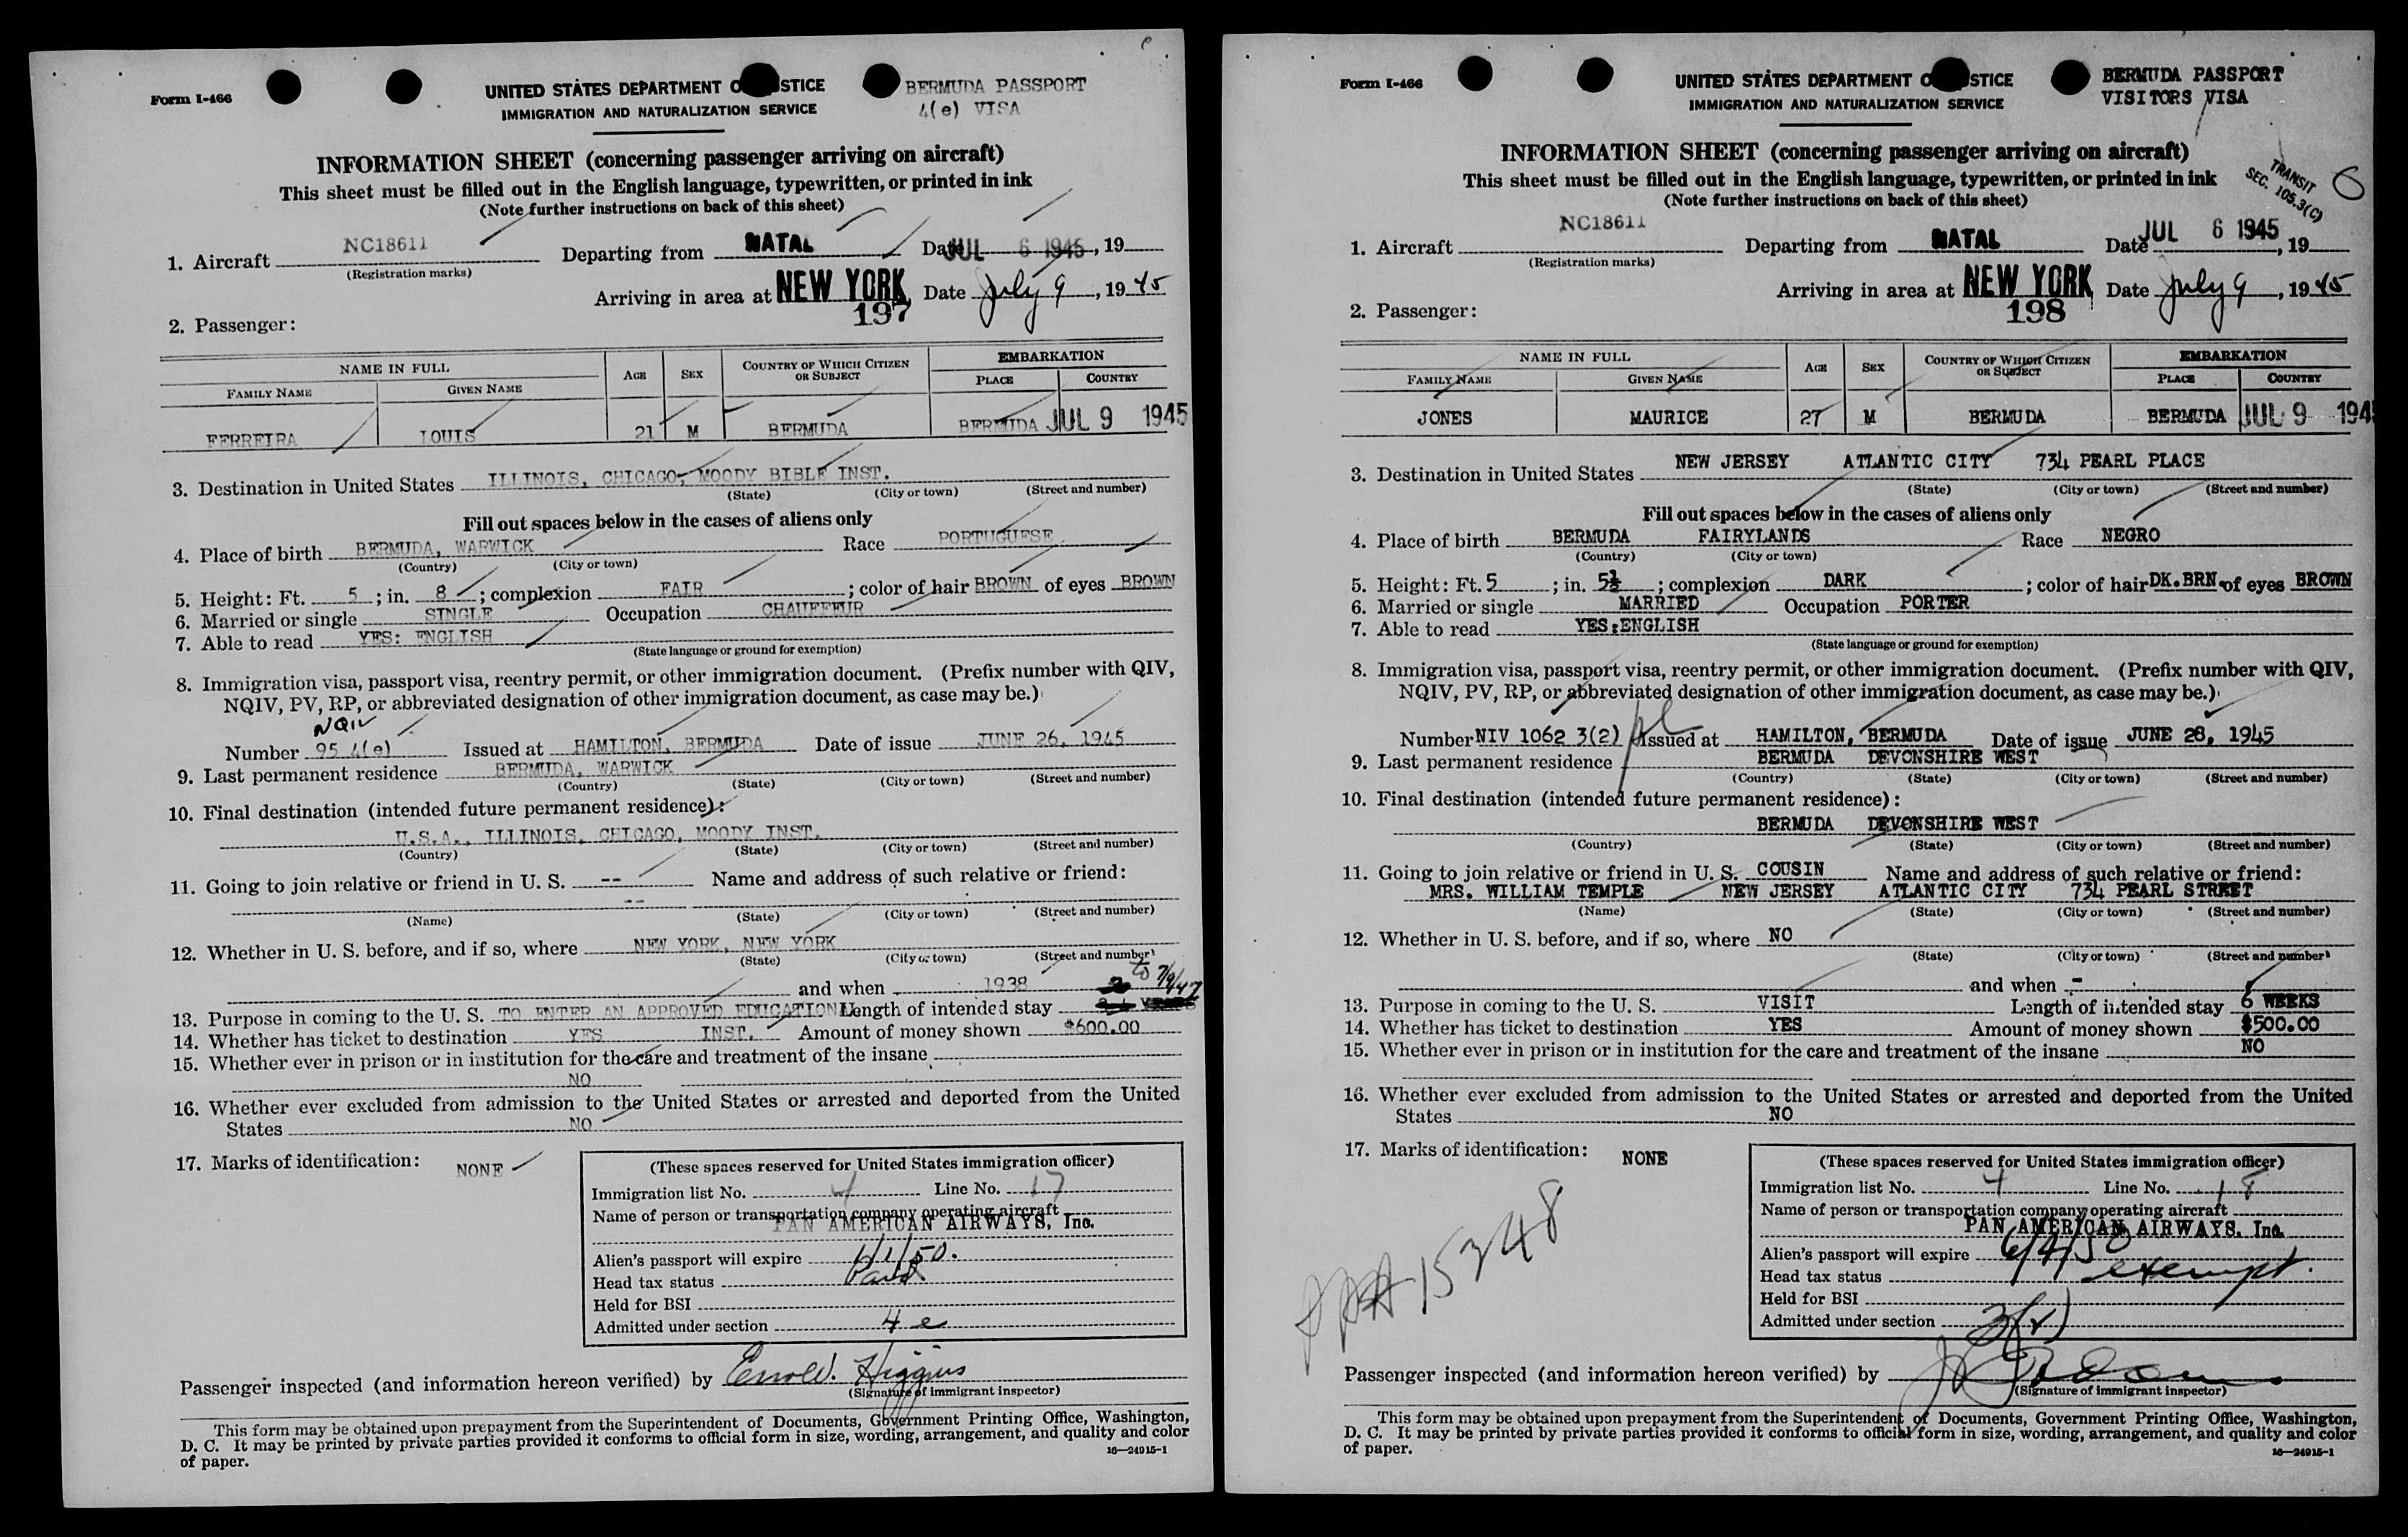 Form I-466
UNITED STATES DEPARTMENT O STICE
IMMIGRATION AND NATURALIZATION SERVICE
BERMUDA PASSPORT
4(e) VISA
INFORMATION SHEET (concerning passenger arriving on aircraft)
This sheet must be filled out in the English language, typewritten, or printed in ink
(Note further instructions on back of this sheet)
1. Aircraft NC18611 Departing from NATAL Date JUL 6 1945, 19
(Registration marks)
Arriving in area at NEW YORK Date July 9, 1945
197
2. Passenger:
NAME IN FULL AGE SEX COUNTRY OF WHICH CITIZEN OR SUBJECT EMBARKATION
FAMILY NAME GIVEN NAME PLACE COUNTRY
FERREIRA LOUIS 21 M BERMUDA BERMUDA JUL 9 1945
3. Destination in United States ILLINOIS, CHICAGO, MOODY BIBLE INST.
(State) (City or town) (Street and number)
Fill out spaces below in the cases of aliens only
4. Place of birth BERMUDA, WARWICK Race PORTUGUESE
(Country) (City or town)
5. Height: Ft. 5; in. 8; complexion FAIR; color of hair BROWN of eyes BROWN
6. Married or single SINGLE Occupation CHAUFFEUR
7. Able to read YES: ENGLISH
(State language or ground for exemption)
8. Immigration visa, passport visa, reentry permit, or other immigration document. (Prefix number with QIV,
NQIV, PV, RP, or abbreviated designation of other immigration document, as case may be.)
NQIV
Number 95 4(e) Issued at HAMILTON, BERMUDA Date of issue JUNE 26, 1945
9. Last permanent residence BERMUDA, WARWICK
(Country) (State) (City or town) (Street and number)
10. Final destination (intended future permanent residence):
U.S.A., ILLINOIS, CHICAGO, MOODY INST.
(Country) (State) (City or town) (Street and number)
11. Going to join relative or friend in U. S. -- Name and address of such relative or friend:
--
(Name) (State) (City or town) (Street and number)
12. Whether in U. S. before, and if so, where NEW YORK, NEW YORK
(State) (City or town) (Street and number)
and when 1938 to 7/9/47
13. Purpose in coming to the U. S. TO ENTER AN APPROVED EDUCATION Length of intended stay
14. Whether has ticket to destination YES INST. Amount of money shown $600.00
15. Whether ever in prison or in institution for the care and treatment of the insane
NO
16. Whether ever excluded from admission to the United States or arrested and deported from the United
States NO
17. Marks of identification: NONE
(These spaces reserved for United States immigration officer)
Immigration list No. 4 Line No. 17
Name of person or transportation company operating aircraft
PAN AMERICAN AIRWAYS, Inc.
Alien's passport will expire 6/1/50.
Head tax status Paid
Held for BSI
Admitted under section 4 e
Passenger inspected (and information hereon verified) by Higgins
(Signature of immigrant inspector)
This form may be obtained upon prepayment from the Superintendent of Documents, Government Printing Office, Washington,
D. C. It may be printed by private parties provided it conforms to official form in size, wording, arrangement, and quality and color
of paper.
16—24915-1
Form I-466
UNITED STATES DEPARTMENT O STICE
IMMIGRATION AND NATURALIZATION SERVICE
BERMUDA PASSPORT
VISITORS VISA
INFORMATION SHEET (concerning passenger arriving on aircraft)
This sheet must be filled out in the English language, typewritten, or printed in ink
(Note further instructions on back of this sheet)
TRANSIT
SEC. 105.3(C)
6
1. Aircraft NC18611 Departing from NATAL Date JUL 6 1945, 19
(Registration marks)
Arriving in area at NEW YORK Date July 9, 1945
198
2. Passenger:
NAME IN FULL AGE SEX COUNTRY OF WHICH CITIZEN OR SUBJECT EMBARKATION
FAMILY NAME GIVEN NAME PLACE COUNTRY
JONES MAURICE 27 M BERMUDA BERMUDA JUL 9 194
3. Destination in United States NEW JERSEY ATLANTIC CITY 734 PEARL PLACE
(State) (City or town) (Street and number)
Fill out spaces below in the cases of aliens only
4. Place of birth BERMUDA FAIRYLANDS Race NEGRO
(Country) (City or town)
5. Height: Ft. 5; in. 5½; complexion DARK; color of hair DK.BRN of eyes BROWN
6. Married or single MARRIED Occupation PORTER
7. Able to read YES:ENGLISH
(State language or ground for exemption)
8. Immigration visa, passport visa, reentry permit, or other immigration document. (Prefix number with QIV,
NQIV, PV, RP, or abbreviated designation of other immigration document, as case may be.)
Number NIV 1062 3(2) Issued at HAMILTON, BERMUDA Date of issue JUNE 28, 1945
9. Last permanent residence BERMUDA DEVONSHIRE WEST
(Country) (State) (City or town) (Street and number)
10. Final destination (intended future permanent residence):
BERMUDA DEVONSHIRE WEST
(Country) (State) (City or town) (Street and number)
11. Going to join relative or friend in U. S. COUSIN Name and address of such relative or friend:
MRS. WILLIAM TEMPLE NEW JERSEY ATLANTIC CITY 734 PEARL STREET
(Name) (State) (City or town) (Street and number)
12. Whether in U. S. before, and if so, where NO
(State) (City or town) (Street and number)
and when -
13. Purpose in coming to the U. S. VISIT Length of intended stay 6 WEEKS
14. Whether has ticket to destination YES Amount of money shown $500.00
15. Whether ever in prison or in institution for the care and treatment of the insane NO
16. Whether ever excluded from admission to the United States or arrested and deported from the United
States NO
17. Marks of identification: NONE
(These spaces reserved for United States immigration officer)
Immigration list No. 4 Line No. 18
Name of person or transportation company operating aircraft
PAN AMERICAN AIRWAYS, Inc.
Alien's passport will expire 6/4/50
Head tax status exempt.
Held for BSI
Admitted under section 3(2)
15348
Passenger inspected (and information hereon verified) by
(Signature of immigrant inspector)
This form may be obtained upon prepayment from the Superintendent of Documents, Government Printing Office, Washington,
D. C. It may be printed by private parties provided it conforms to official form in size, wording, arrangement, and quality and color
of paper.
16—24915-1